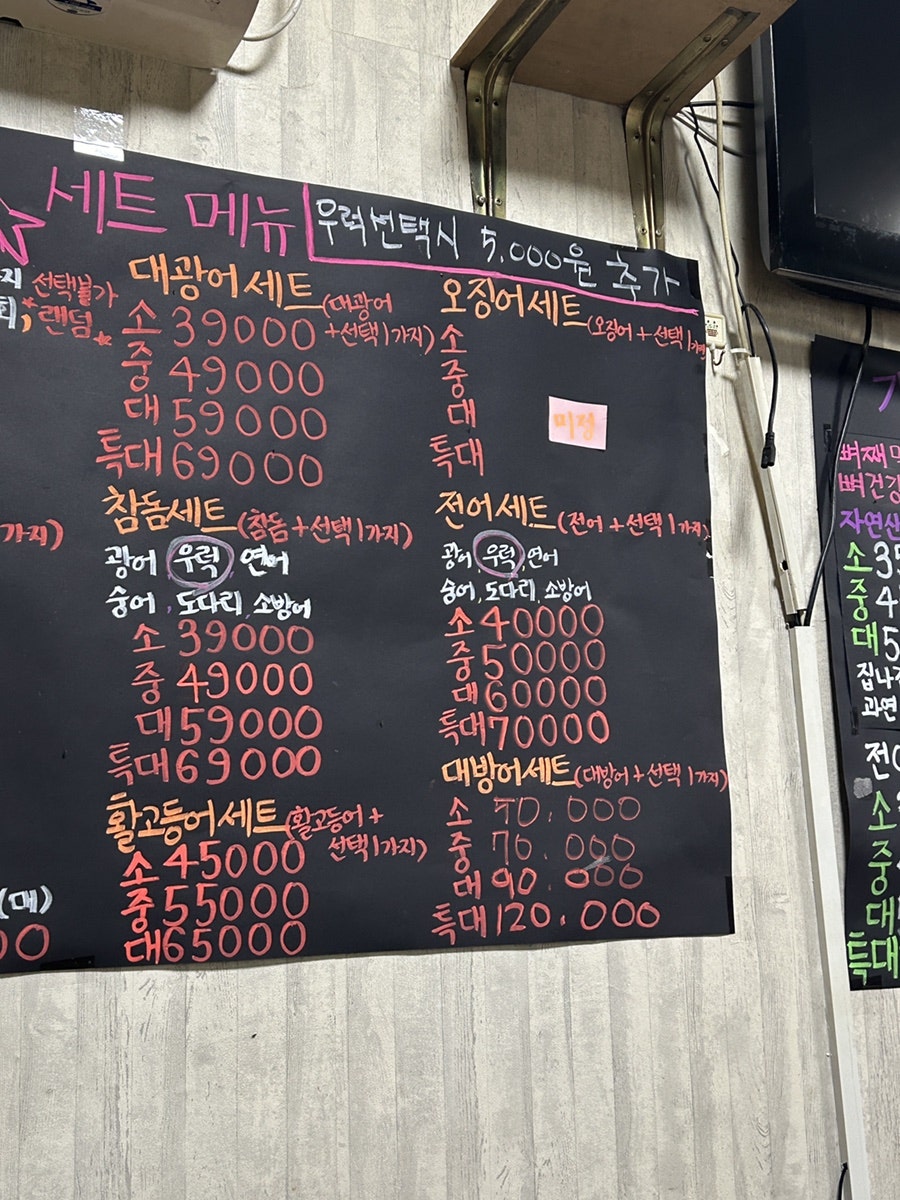 세트 메뉴
우럭선택시 5,000원 추가
선택불가
랜덤
대광어세트 (대광어
+선택1가지)
소 39000
중 49000
대 59000
특대 69000
참돔세트 (참돔+선택1가지)
광어, 우럭, 연어
숭어, 도다리, 소방어
소 39000
중 49000
대 59000
특대 69000
활고등어세트 (활고등어+
선택1가지)
소 45000
중 55000
대 65000
오징어세트 (오징어+선택1가지
소
중
대
특대
미정
전어세트 (전어+선택1가지)
광어, 우럭, 연어
숭어, 도다리, 소방어
소 40000
중 50000
대 60000
특대 70000
대방어세트 (대방어+선택1가지)
소 .000
중 70.000
대 90.000
특대 120.000
가지)
(매)
뼈째
뼈건강
자연산
소 35
중 4
대 5
과연
소
중
대
특대